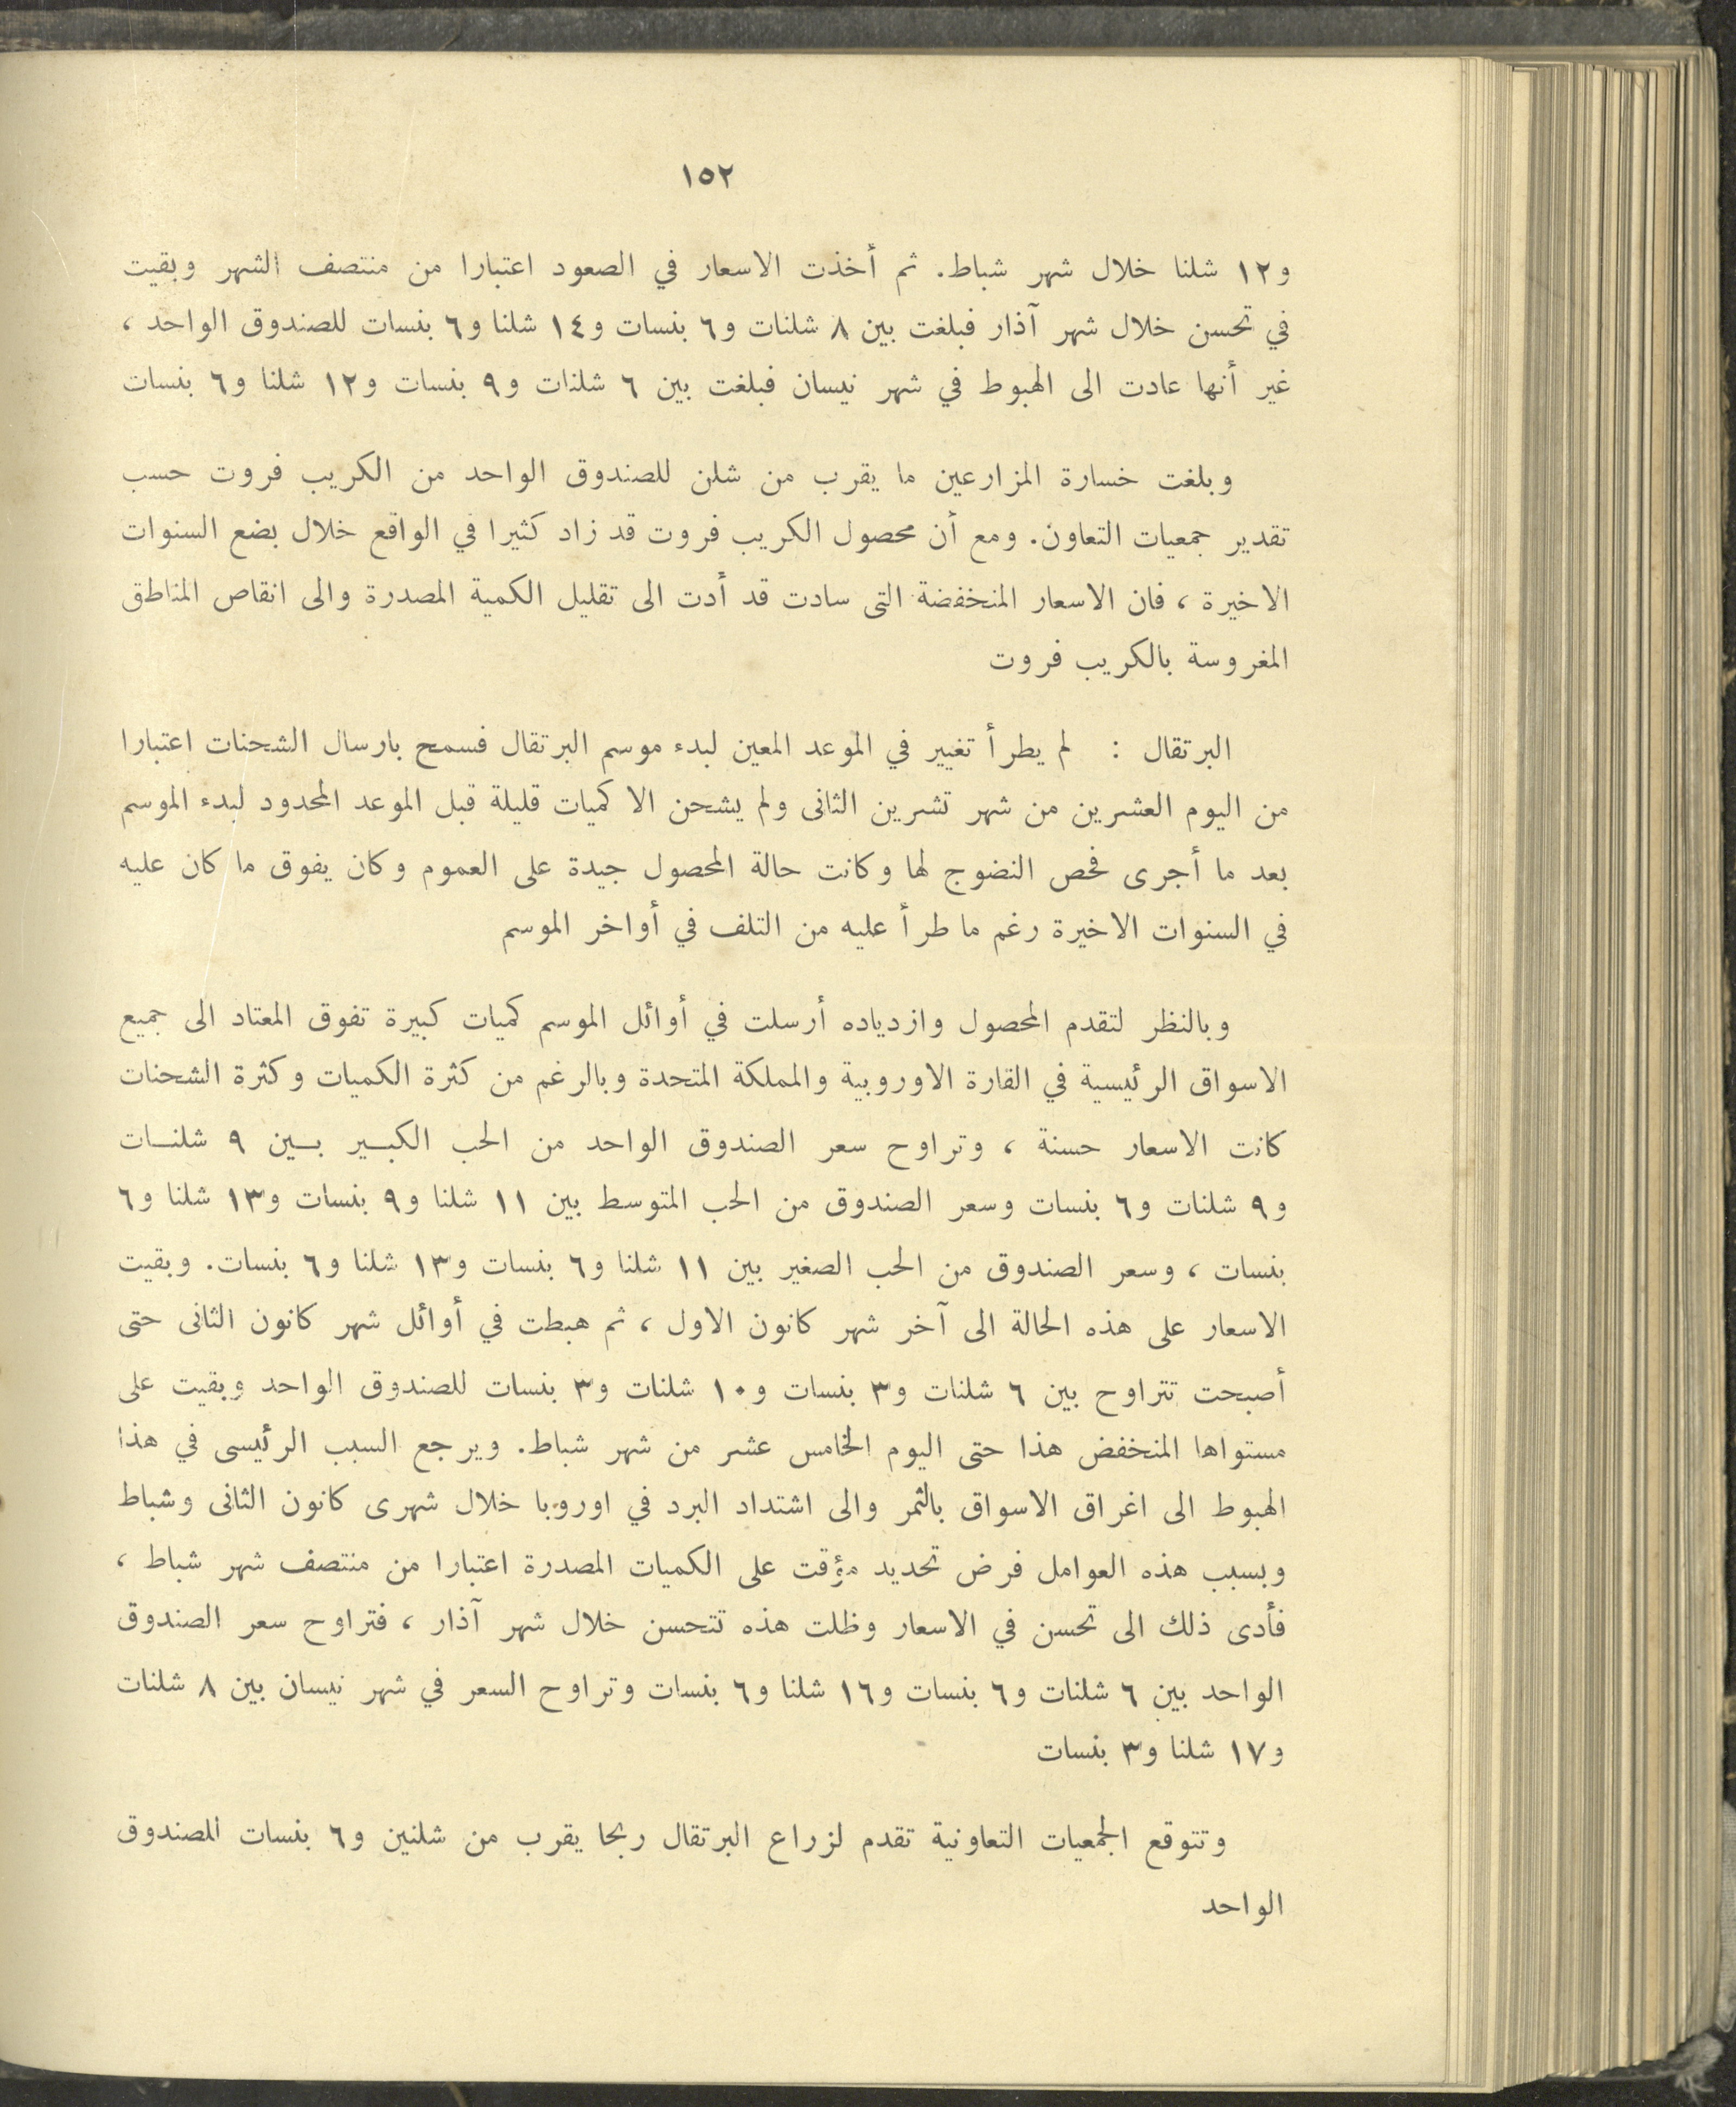 ١٥٢
و١٢ شلنا خلال شهر شباط. ثم أخذت الاسعار في الصعود اعتبارا من منتصف الشهر وبقيت
في تحسن خلال شهر آذار فبلغت بين ٨ شلنات و٦ بنسات و١٤ شلنا و٦ بنسات للصندوق الواحد ،
غير أنها عادت الى الهبوط في شهر نيسان فبلغت بين ٦ شلنات و٩ بنسات و١٢ شلنا و٦ بنسات
وبلغت خسارة المزارعين ما يقرب من شلن للصندوق الواحد من الكريب فروت حسب
تقدير جمعيات التعاون. ومع أن محصول الكريب فروت قد زاد كثيرا في الواقع خلال بضع السنوات
الاخيرة ، فان الاسعار المنخفضة التى سادت قد أدت الى تقليل الكمية المصدرة والى انقاص المناطق
المغروسة بالكريب فروت
البرتقال : لم يطرأ تغيير في الموعد المعين لبدء موسم البرتقال فسمح بارسال الشحنات اعتبارا
من اليوم العشرين من شهر تشرين الثانى ولم يشحن الا كميات قليلة قبل الموعد المحدود لبدء الموسم
بعد ما أجرى فحص النضوج لها وكانت حالة المحصول جيدة على العموم وكان يفوق ما كان عليه
في السنوات الاخيرة رغم ما طرأ عليه من التلف في أواخر الموسم
وبالنظر لتقدم المحصول وازدياده أرسلت في أوائل الموسم كميات كبيرة تفوق المعتاد الى جميع
الاسواق الرئيسية في القارة الاوروبية والمملكة المتحدة وبالرغم من كثرة الكميات وكثرة الشحنات
كانت الاسعار حسنة ، وتراوح سعر الصندوق الواحد من الحب الكبير بين ٩ شلنات
و٩ شلنات و٦ بنسات وسعر الصندوق من الحب المتوسط بين ١١ شلنا و٩ بنسات و١٣ شلنا و٦
بنسات ، وسعر الصندوق من الحب الصغير بين ١١ شلنا و٦ بنسات و١٣ شلنا و٦ بنسات. وبقيت
الاسعار على هذه الحالة الى آخر شهر كانون الاول ، ثم هبطت في أوائل شهر كانون الثانى حتى
أصبحت تتراوح بين ٦ شلنات و٣ بنسات و١٠ شلنات و٣ بنسات للصندوق الواحد وبقيت على
مستواها المنخفض هذا حتى اليوم الخامس عشر من شهر شباط. ويرجع السبب الرئيسى في هذا
الهبوط الى اغراق الاسواق بالثمر والى اشتداد البرد في اوروبا خلال شهرى كانون الثانى وشباط
وبسبب هذه العوامل فرض تحديد مؤقت على الكميات المصدرة اعتبارا من منتصف شهر شباط ،
فأدى ذلك الى تحسن في الاسعار وظلت هذه تتحسن خلال شهر آذار ، فتراوح سعر الصندوق
الواحد بين ٦ شلنات و٦ بنسات و١٦ شلنا و٦ بنسات وتراوح السعر في شهر نيسان بين ٨ شلنات
و١٧ شلنا و٣ بنسات
وتتوقع الجمعيات التعاونية تقدم لزراع البرتقال ربحا يقرب من شلنين و٦ بنسات للصندوق
الواحد